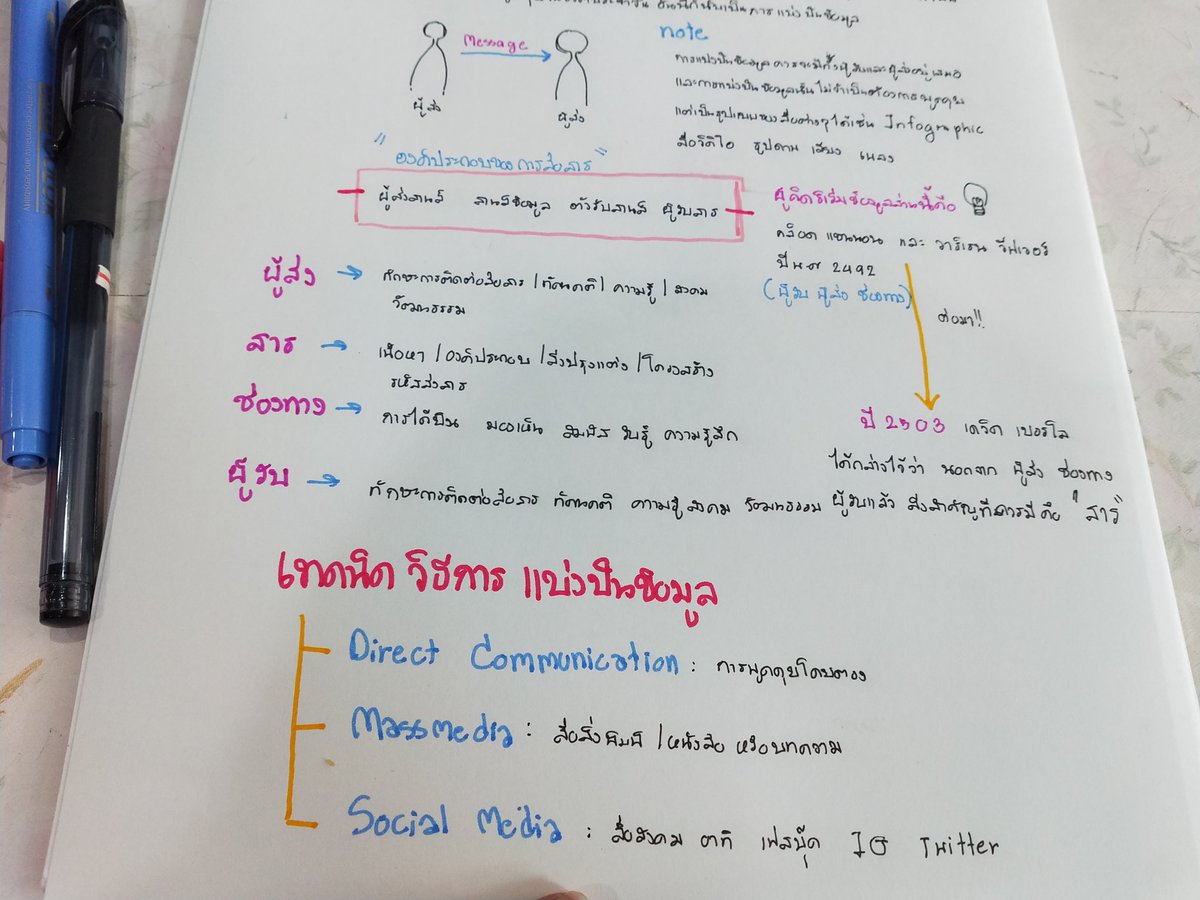 อันนี้ก็นับเป็นการแบ่งปันข้อมูล
Message
ผู้ส่ง
ผู้ส่ง
note
การแบ่งปันข้อมูลควรจะมีทั้งผู้รับและผู้ส่งอยู่เสมอ
และการแบ่งปันข้อมูลนั้นไม่จำเป็นต้องการพูดคุย
แต่เป็นรูปแบบของสื่อต่างๆได้เช่น Infographic
สื่อวิดิโอ รูปภาพ เสียง เพลง
"องค์ประกอบของการสื่อสาร"
ผู้ส่งสานส์ สานส์ข้อมูล ตัวรับสานส์ ผู้รับสาร
ผู้คิดริเริ่มข้อมูลส่วนนี้คือ
คล็อด แชนนอน และ วาร์เรน วีฟเวอร์
ปีพศ 2492
(ผู้รับ ผู้ส่ง ช่องทาง)
ต่อมา!!
ผู้ส่ง → ทักษะการติดต่อสื่อสาร / ทัศนคติ / ความรู้ / สังคม
วัฒนธรรม
สาร → เนื้อหา / องค์ประกอบ / สิ่งปรุงแต่ง / โครงสร้าง
รหัสส่งสาร
ช่องทาง → การได้ยิน มองเห็น สัมผัส รับรู้ ความรู้สึก
ผู้รับ → ทักษะการติดต่อสื่อสาร ทัศนคติ ความรู้ สังคม วัฒนธรรม
ปี 2503 เดวิด เบอร์โล
ได้กล่าวไว้ว่า นอกจาก ผู้ส่ง ช่องทาง
ผู้รับแล้ว สิ่งสำคัญที่ควรมี คือ "สาร"
เทคนิค วิธีการ แบ่งปันข้อมูล
Direct Communication : การพูดคุยโดยตรง
Massmedia : สื่อสิ่งพิมพ์ / หนังสือ หรือบทความ
Social Media : สื่อสังคม อาทิ เฟสบุ๊ค IG Twitter